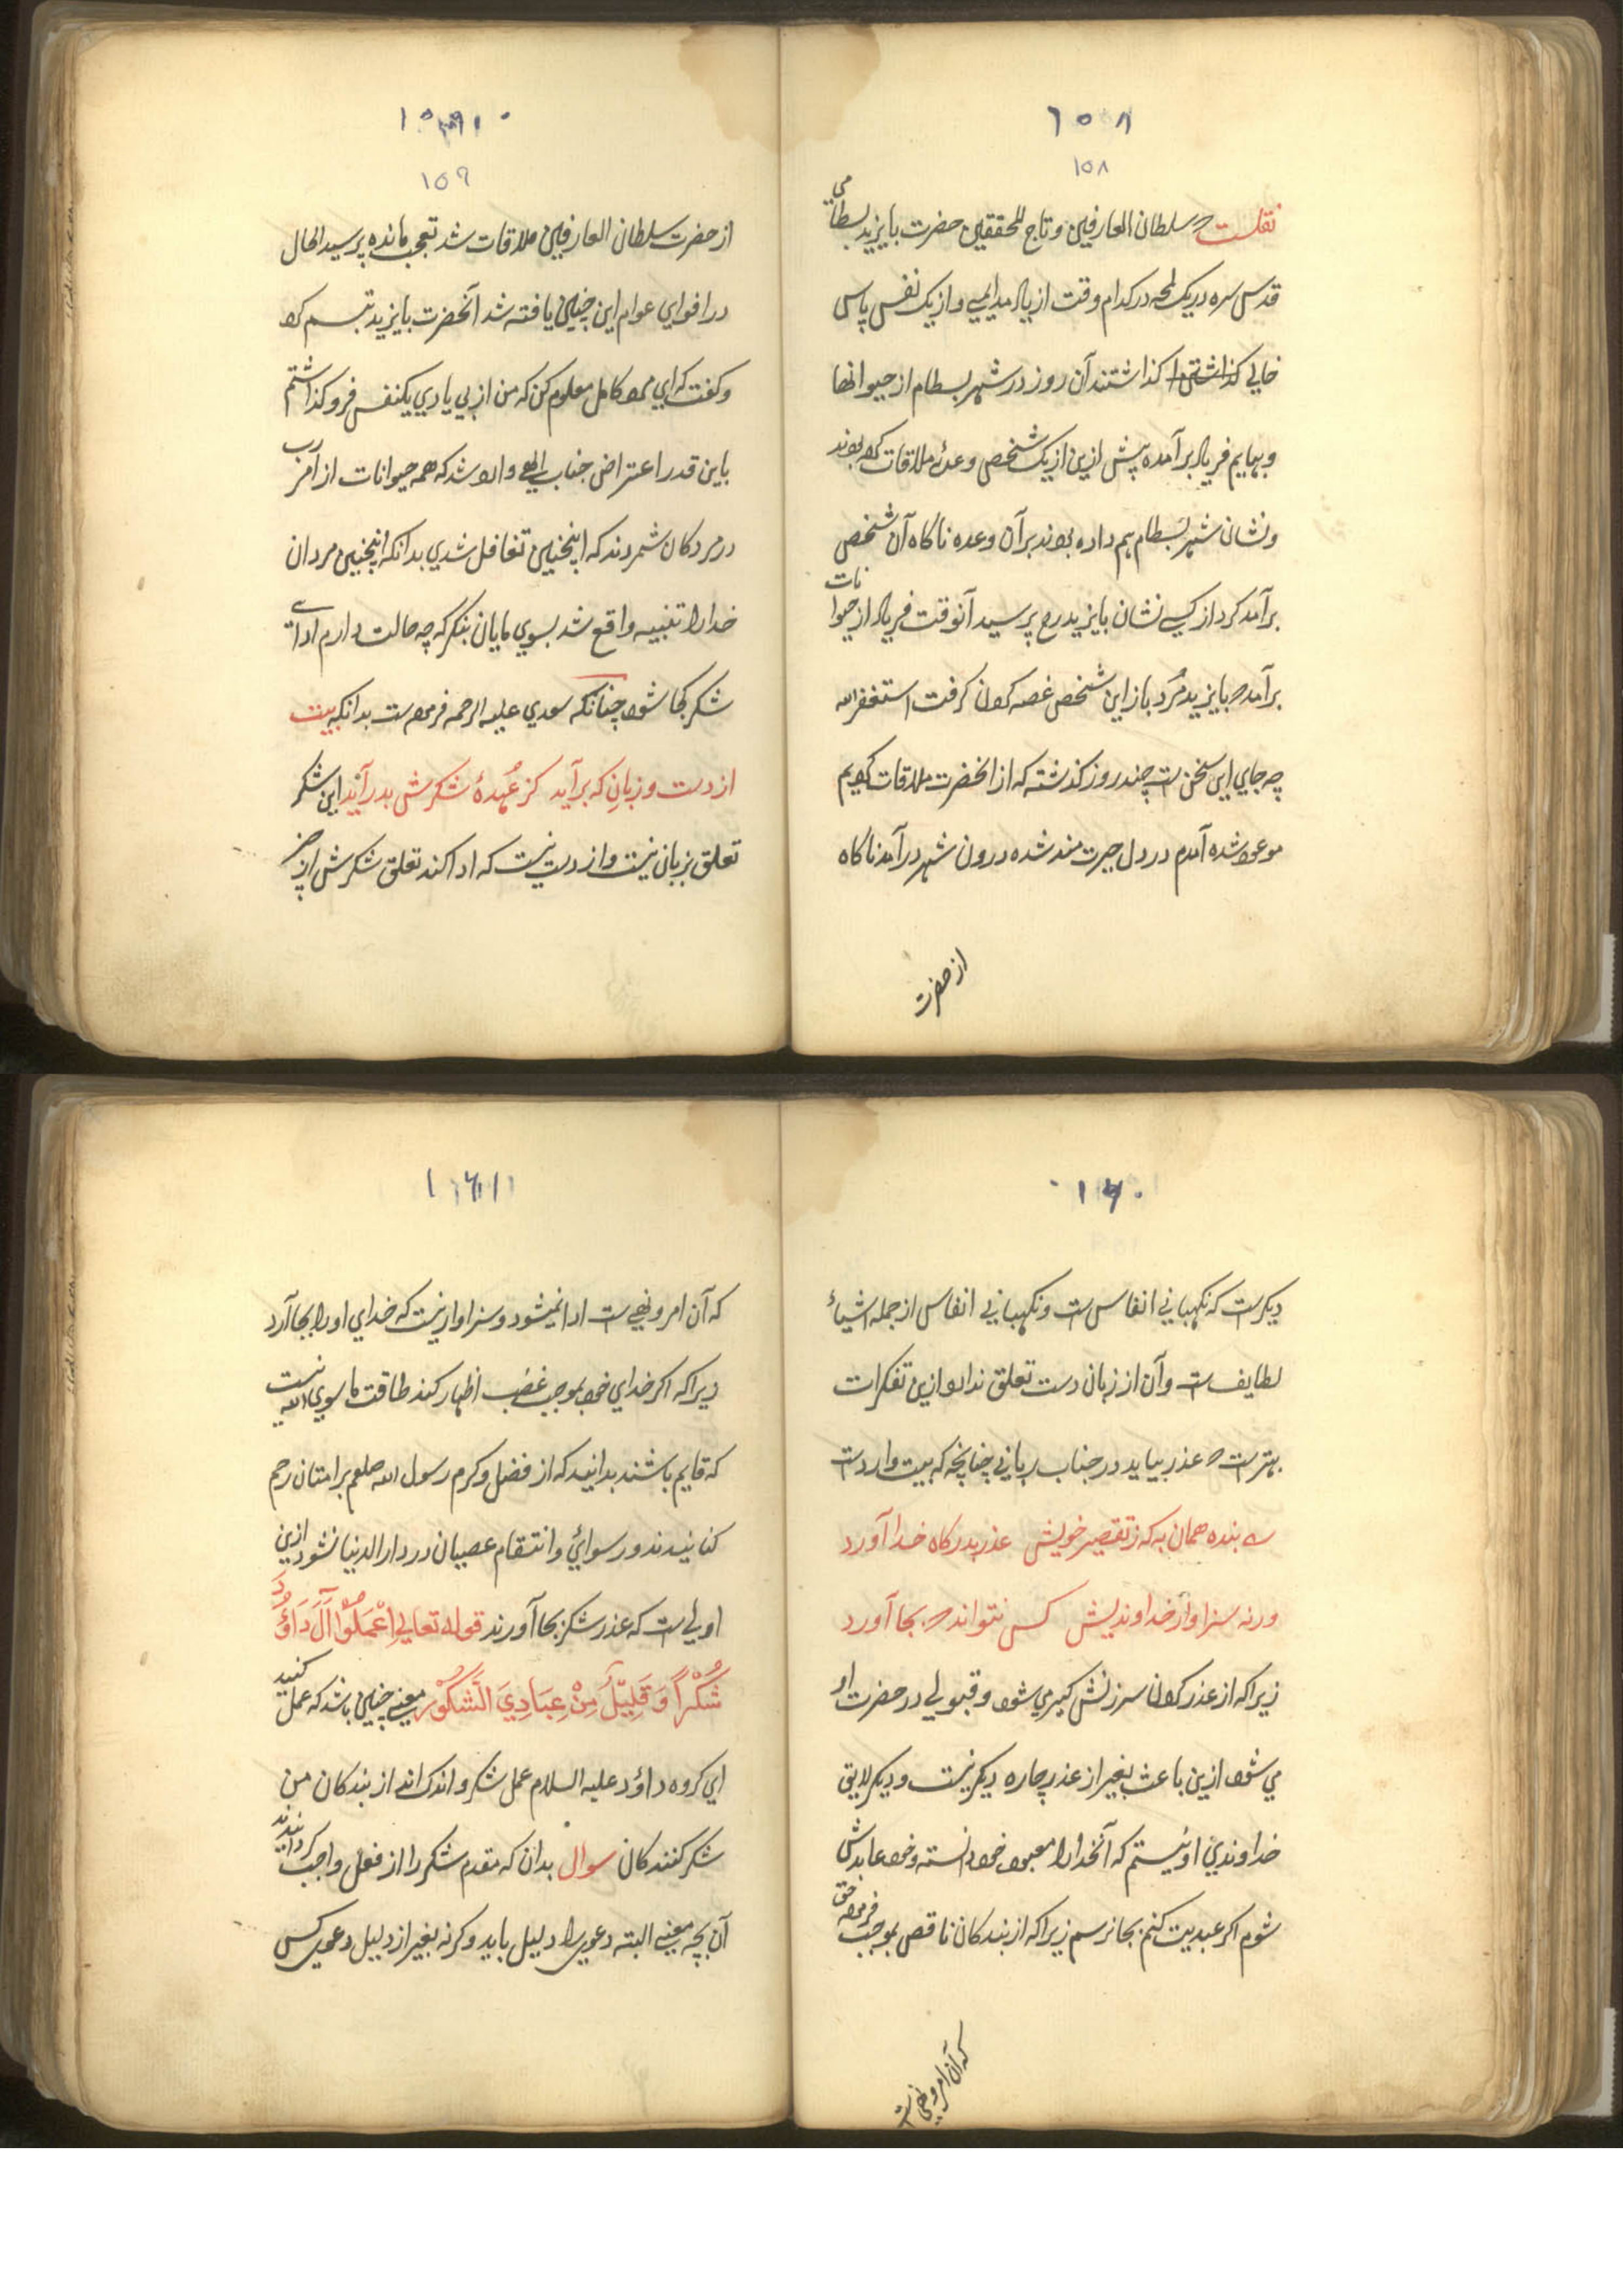 ۱۵۸
۱۵۸
نقلست که سلطان العارفین و تاج المحققین حضرت بایزید بسطامی
قدس سره در یک لمحه در کدام وقت از یاد مدایمی و از یک نفس پاس
خالی گذاشتند آن روز در شهر بسطام از حیوانها
و بهایم فریاد برآمده پیش ازین از یک شخصی وعدهٔ ملاقات کرده بودند
و نشان شهر بسطام هم داده بودند برآن وعده ناکاه آن شخص
برآمد کرد از کسی نشان بایزید رح پرسید آنوقت فریاد از حیوانات
برآمد که بایزید مُرد باز این شخص غصه کردن کرفت استغفرالله
چه جای این سخن ست چند روز کذشته که از انحضرت ملاقات کردیم
موعود شده آمدم در دل حیرت مند شده درون شهر درآمد ناکاه
از حضرت
۱۵۹
۱۵۹
از حضرت سلطان العارفین ملاقات شد تعجب مانده پرسید الحال
در افوای عوام این چنین یافته شد آنحضرت بایزید تبسم کرد
و کفت که ای مرد کامل معلوم کن که من از بی یادی یکنفس فرو کذاشتم
باین قدر اعتراض جناب الهی وارد شد که همه حیوانات از امر رب
در مردکان شمردند که اینچنین تغافل شدی بدانکه اینچنین مردان
خدا را تنبیه واقع شد بسوی مایان بنکر که چه حالت دارم ادای
شکر بجا شود چنانکه سعدی علیه الرحمه فرموده ست بدانکه بیت
از دست و زبانِ که برآید کز عُهدهٔ شکرش بدر آید این شکر
تعلق بزبان نیست و از دست نیست که ادا کند تعلق شکرش از چیز
۱۶۰
دیکرست که نکهبانی انفاس ست و نکهبانی انفاس از جمله اشیاءِ
لطایف ست و آن از زبان دست تعلق ندارد ازین تفکرات
بهترست که عذر بیاید در جناب ربانی چنانچه که بیت وارد ست
بنده همان به که ز تقصیر خویش عذر بدرکاه خدا آورد
ورنه سزاوار خداوندیش کس نتواند که بجا آورد
زیرا که از عذر کردن سرزنش کمیر می شود و قبولی در حضرت او
می شود ازین باعث بغیر از عذر چاره دیکر نیست و دیکر لایق
خداوندی او نیستم که آنخدا را معبود خود دانسته و خود عابدش
شوم اکر عبدیت کنم بجا نرسم زیرا که از بندکان ناقص بموجب فرموده حق
که آن امر و نهی ست
۱۶۱
که آن امر و نهی ست ادا نمیشود و سزاوار نیست که خدای او را بجا آرد
زیرا که اکر خدای خود بموجب غضب اظهار کند طاقت ماسوی الله نیست
که قایم باشند بدانید که از فضل و کرم رسول الله صلعم بر امتان رحم
کنانیدند و رسوائی و انتقام عصیان در دار الدنیا نشود ازین
اولی ست که عذر شکر بجا آورند قوله تعالی اِعْمَلُوْا آلَ دَاوُدَ
شُكْرًا وَ قَلِيْلٌ مِنْ عِبَادِيَ الشَّكُوْر یعنی چنین باشد که عمل کنید
ای کروه داؤد علیه السلام عمل شکر و اندک اند از بندکان من
شکر کنندکان سوال بدان که مقدم شکر را از فعل واجب کردانیدند
آن بچه معنی البته دعوی را دلیل باید وکرنه بغیر از دلیل دعوی کس